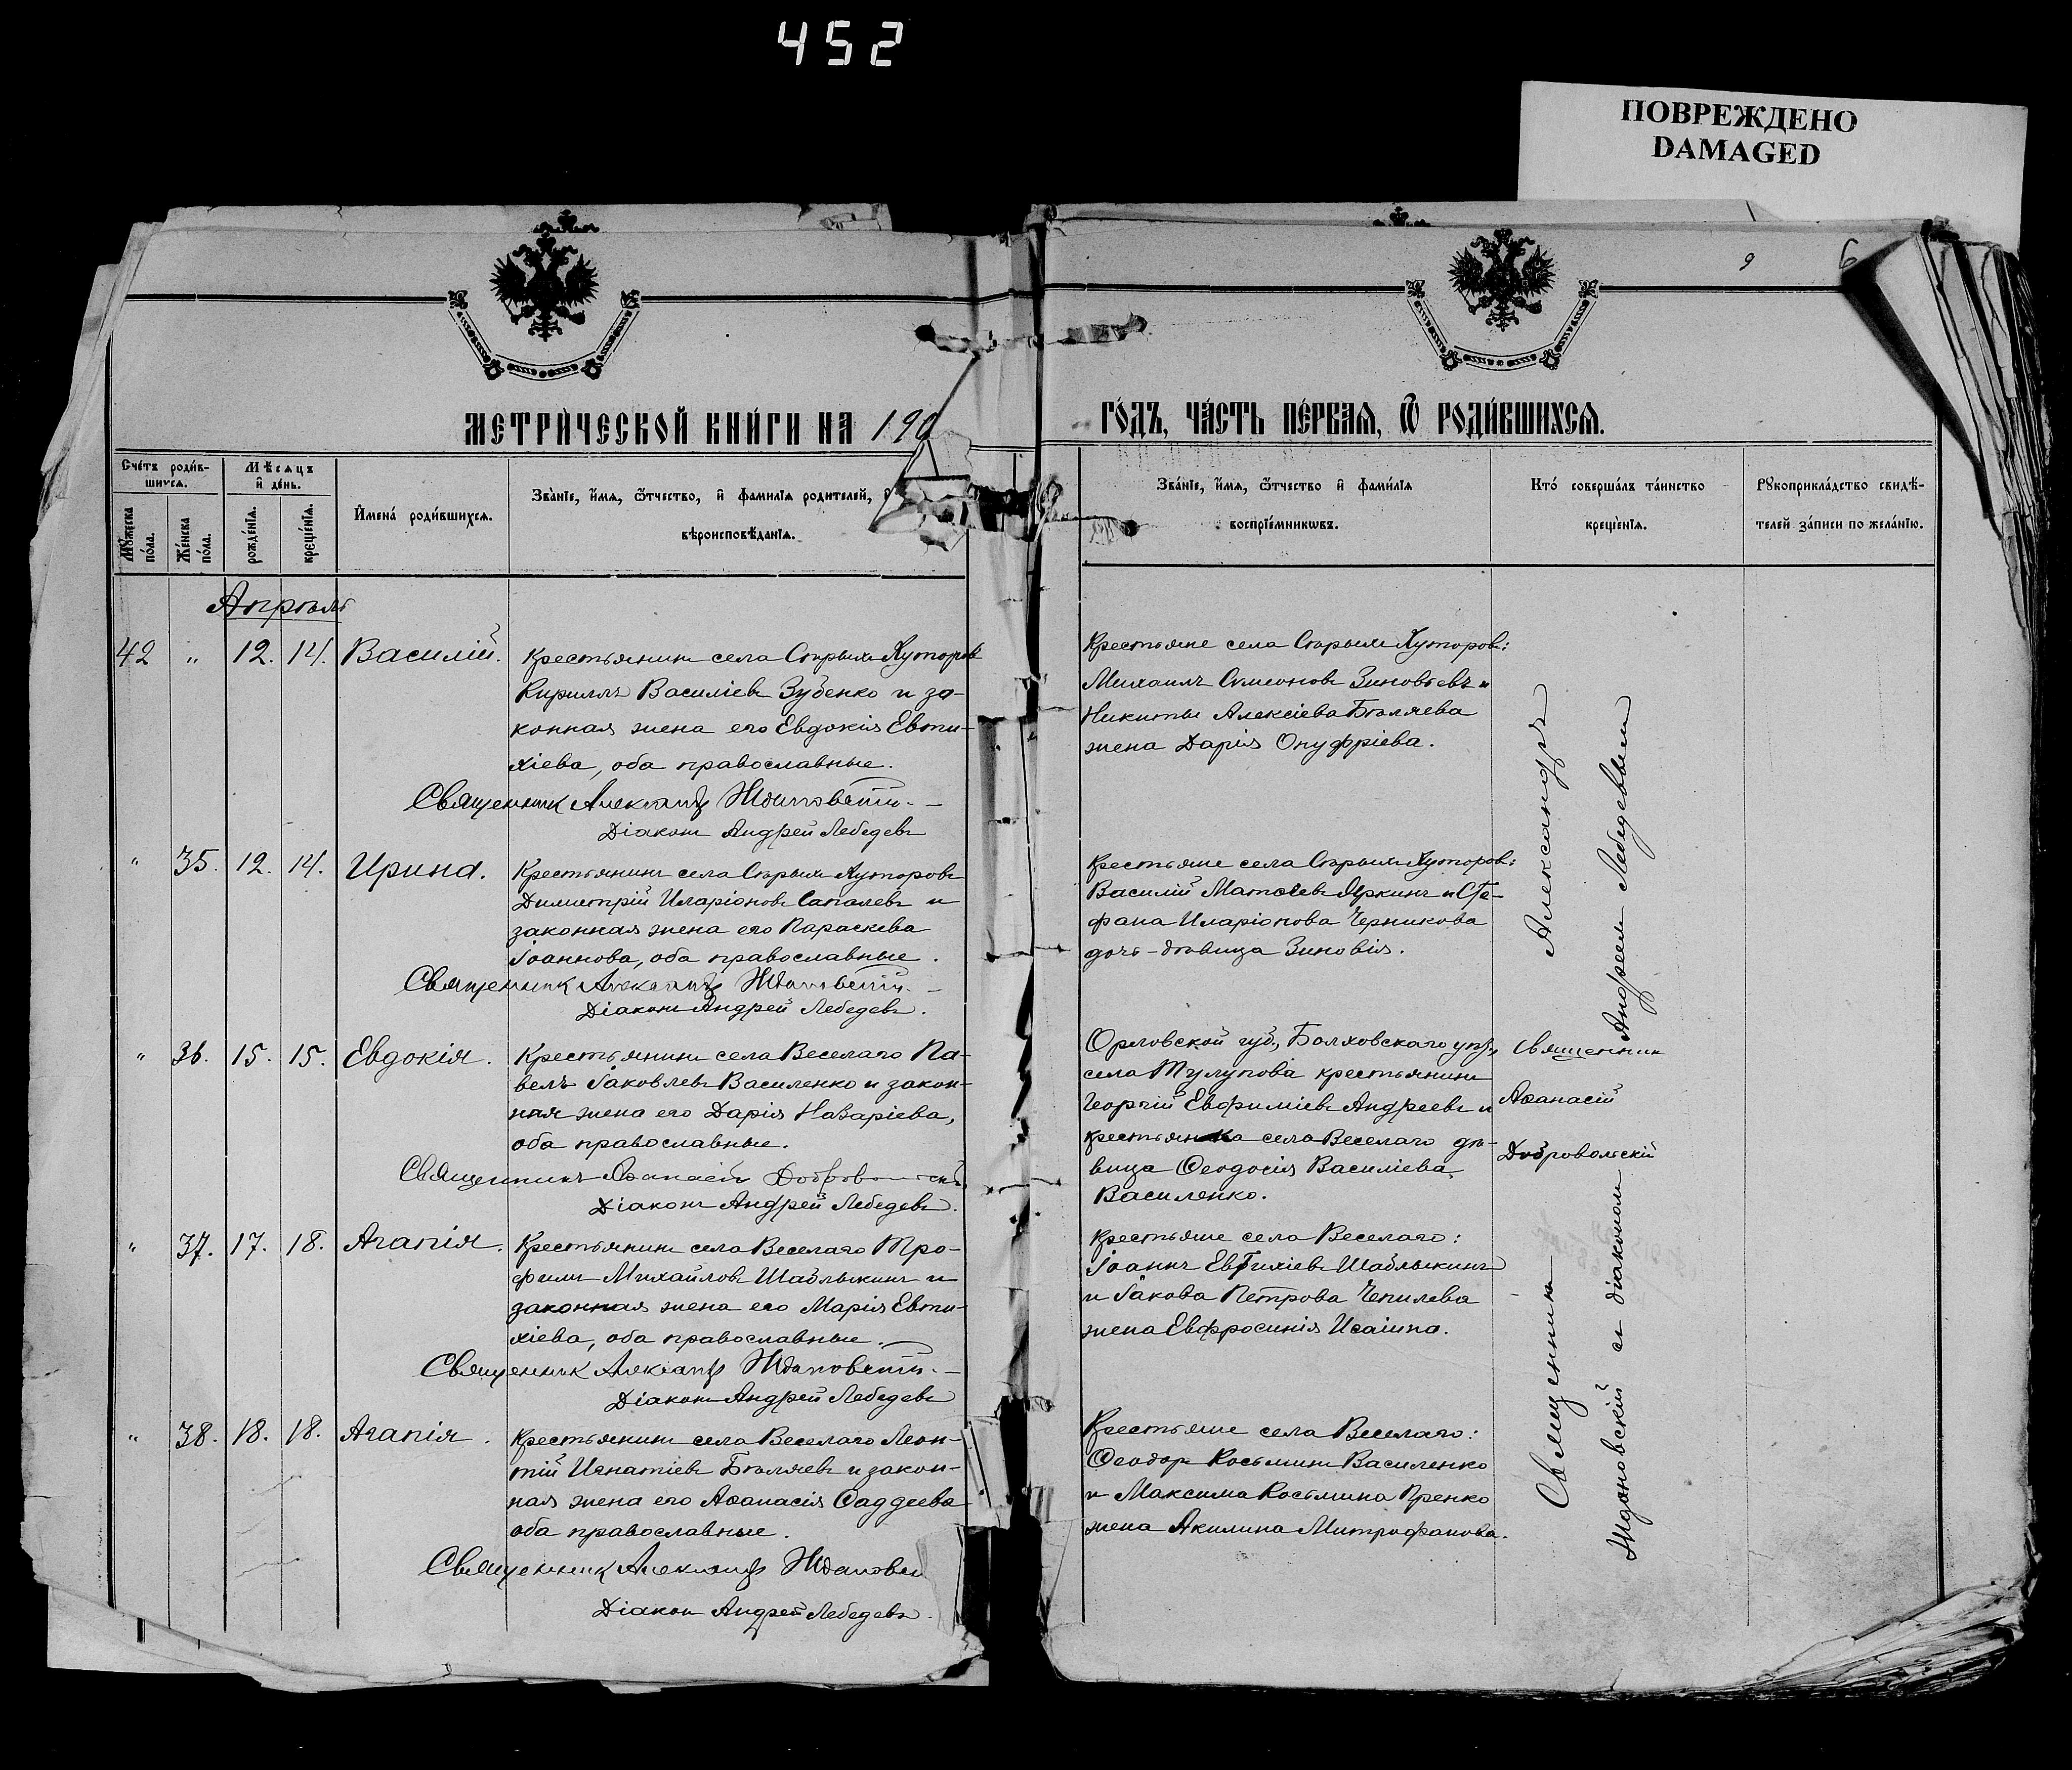 452
ПОВРЕЖДЕНО
DAMAGED
9 6
МЕТРИ́ЧЕСКОЙ КНИ́ГИ НА 190
ГО́ДЪ, ЧА́СТЬ ПЕ́РВАѦ, Ѿ РОДИ́ВШИХСѦ.
Сче́тъ роди́в-
шихсѧ.
Мѣсѧцъ
и́ де́нь.
Мꙋжеска
по́ла.
Же́нска
по́ла.
рожде́нїѧ.
креще́нїѧ.
И̓мена́ роди́вшихсѧ.
Зва́нїе, и́мѧ, ѻ́тчество, и́ фамилїѧ родителей,
вѣроисповѣданїѧ.
Зва́нїе, и́мѧ, ѻ́тчество и́ фами́лїѧ
воспрїе́мникѡвъ.
Кто́ соверша́лъ та́инство
креще́нїѧ.
Рꙋкоприкла́дство свидѣ́-
телей за́писи по жела́нїю.
Апрѣль
42 " 12. 14. Василій.
Крестьянинъ села Старыхъ Хуторовъ
Кириллъ Василіевъ Зубенко и за-
конная жена его Евдокія Евти-
хіева, оба православные.
Священникъ Александръ Ждановскій.
Діаконъ Андрей Лебедевъ
Крестьяне села Старыхъ Хуторовъ:
Михаилъ Симеоновъ Зиновьевъ и
Никиты Алексіева Бѣляева
жена Дарія Онуфріева.
" 35. 12. 14. Ирина.
Крестьянинъ села Старыхъ Хуторовъ
Димитрій Иларіоновъ Сапалевъ и
законная жена его Параскева
Іоаннова, оба православные.
Священникъ Александръ Ждановскій.
Діаконъ Андрей Лебедевъ.
Крестьяне села Старыхъ Хуторовъ:
Василій Матѳіевъ Яркинъ и Сте-
фана Иларіонова Черникова
дочь-дѣвица Зиновія.
" 36. 15. 15. Евдокія.
Крестьянинъ села Веселаго Па-
велъ Іаковлевъ Василенко и закон-
ная жена его Дарія Назаріева,
оба православные.
Священникъ Аѳанасій Добровольскій.
Діаконъ Андрей Лебедевъ.
Орловской губ., Болховскаго уѣз.,
села Тулупова крестьянинъ
Георгій Евфиміевъ Андреевъ и
крестьянка села Веселаго дѣ-
вица Ѳеодосія Василіева
Василенко.
Священникъ
Аѳанасій
Добровольскій
" 37. 17. 18. Агапія.
Крестьянинъ села Веселаго Тро-
фимъ Михайловъ Шаблыкинъ и
законная жена его Марія Евти-
хіева, оба православные.
Священникъ Александръ Ждановскій.
Діаконъ Андрей Лебедевъ
Крестьяне села Веселаго:
Іоаннъ Евтихіевъ Шаблыкинъ
и Іакова Петрова Чепилева
жена Евфросинія Исаіина.
" 38. 18. 18. Агапія.
Крестьянинъ села Веселаго Леон-
тій Игнатіевъ Бѣляевъ и закон-
ная жена его Аѳанасія Ѳаддеева
оба православные.
Священникъ Александръ Ждановск
Діаконъ Андрей Лебедевъ.
Крестьяне села Веселаго:
Ѳеодоръ Косьминъ Василенко
и Максима Косьмина Пренко
жена Акилина Митрофанова.
Священникъ Александръ
Ждановскій съ діакономъ Андреемъ Лебедевымъ